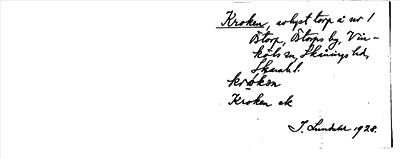 Kroken, avlyst torp å nr 1
Östorp, Östorps by, Vin-
köls sn, Skånings hd,
Skarab.l.
krøken
Kroken ek
I. Lundahl 1928.